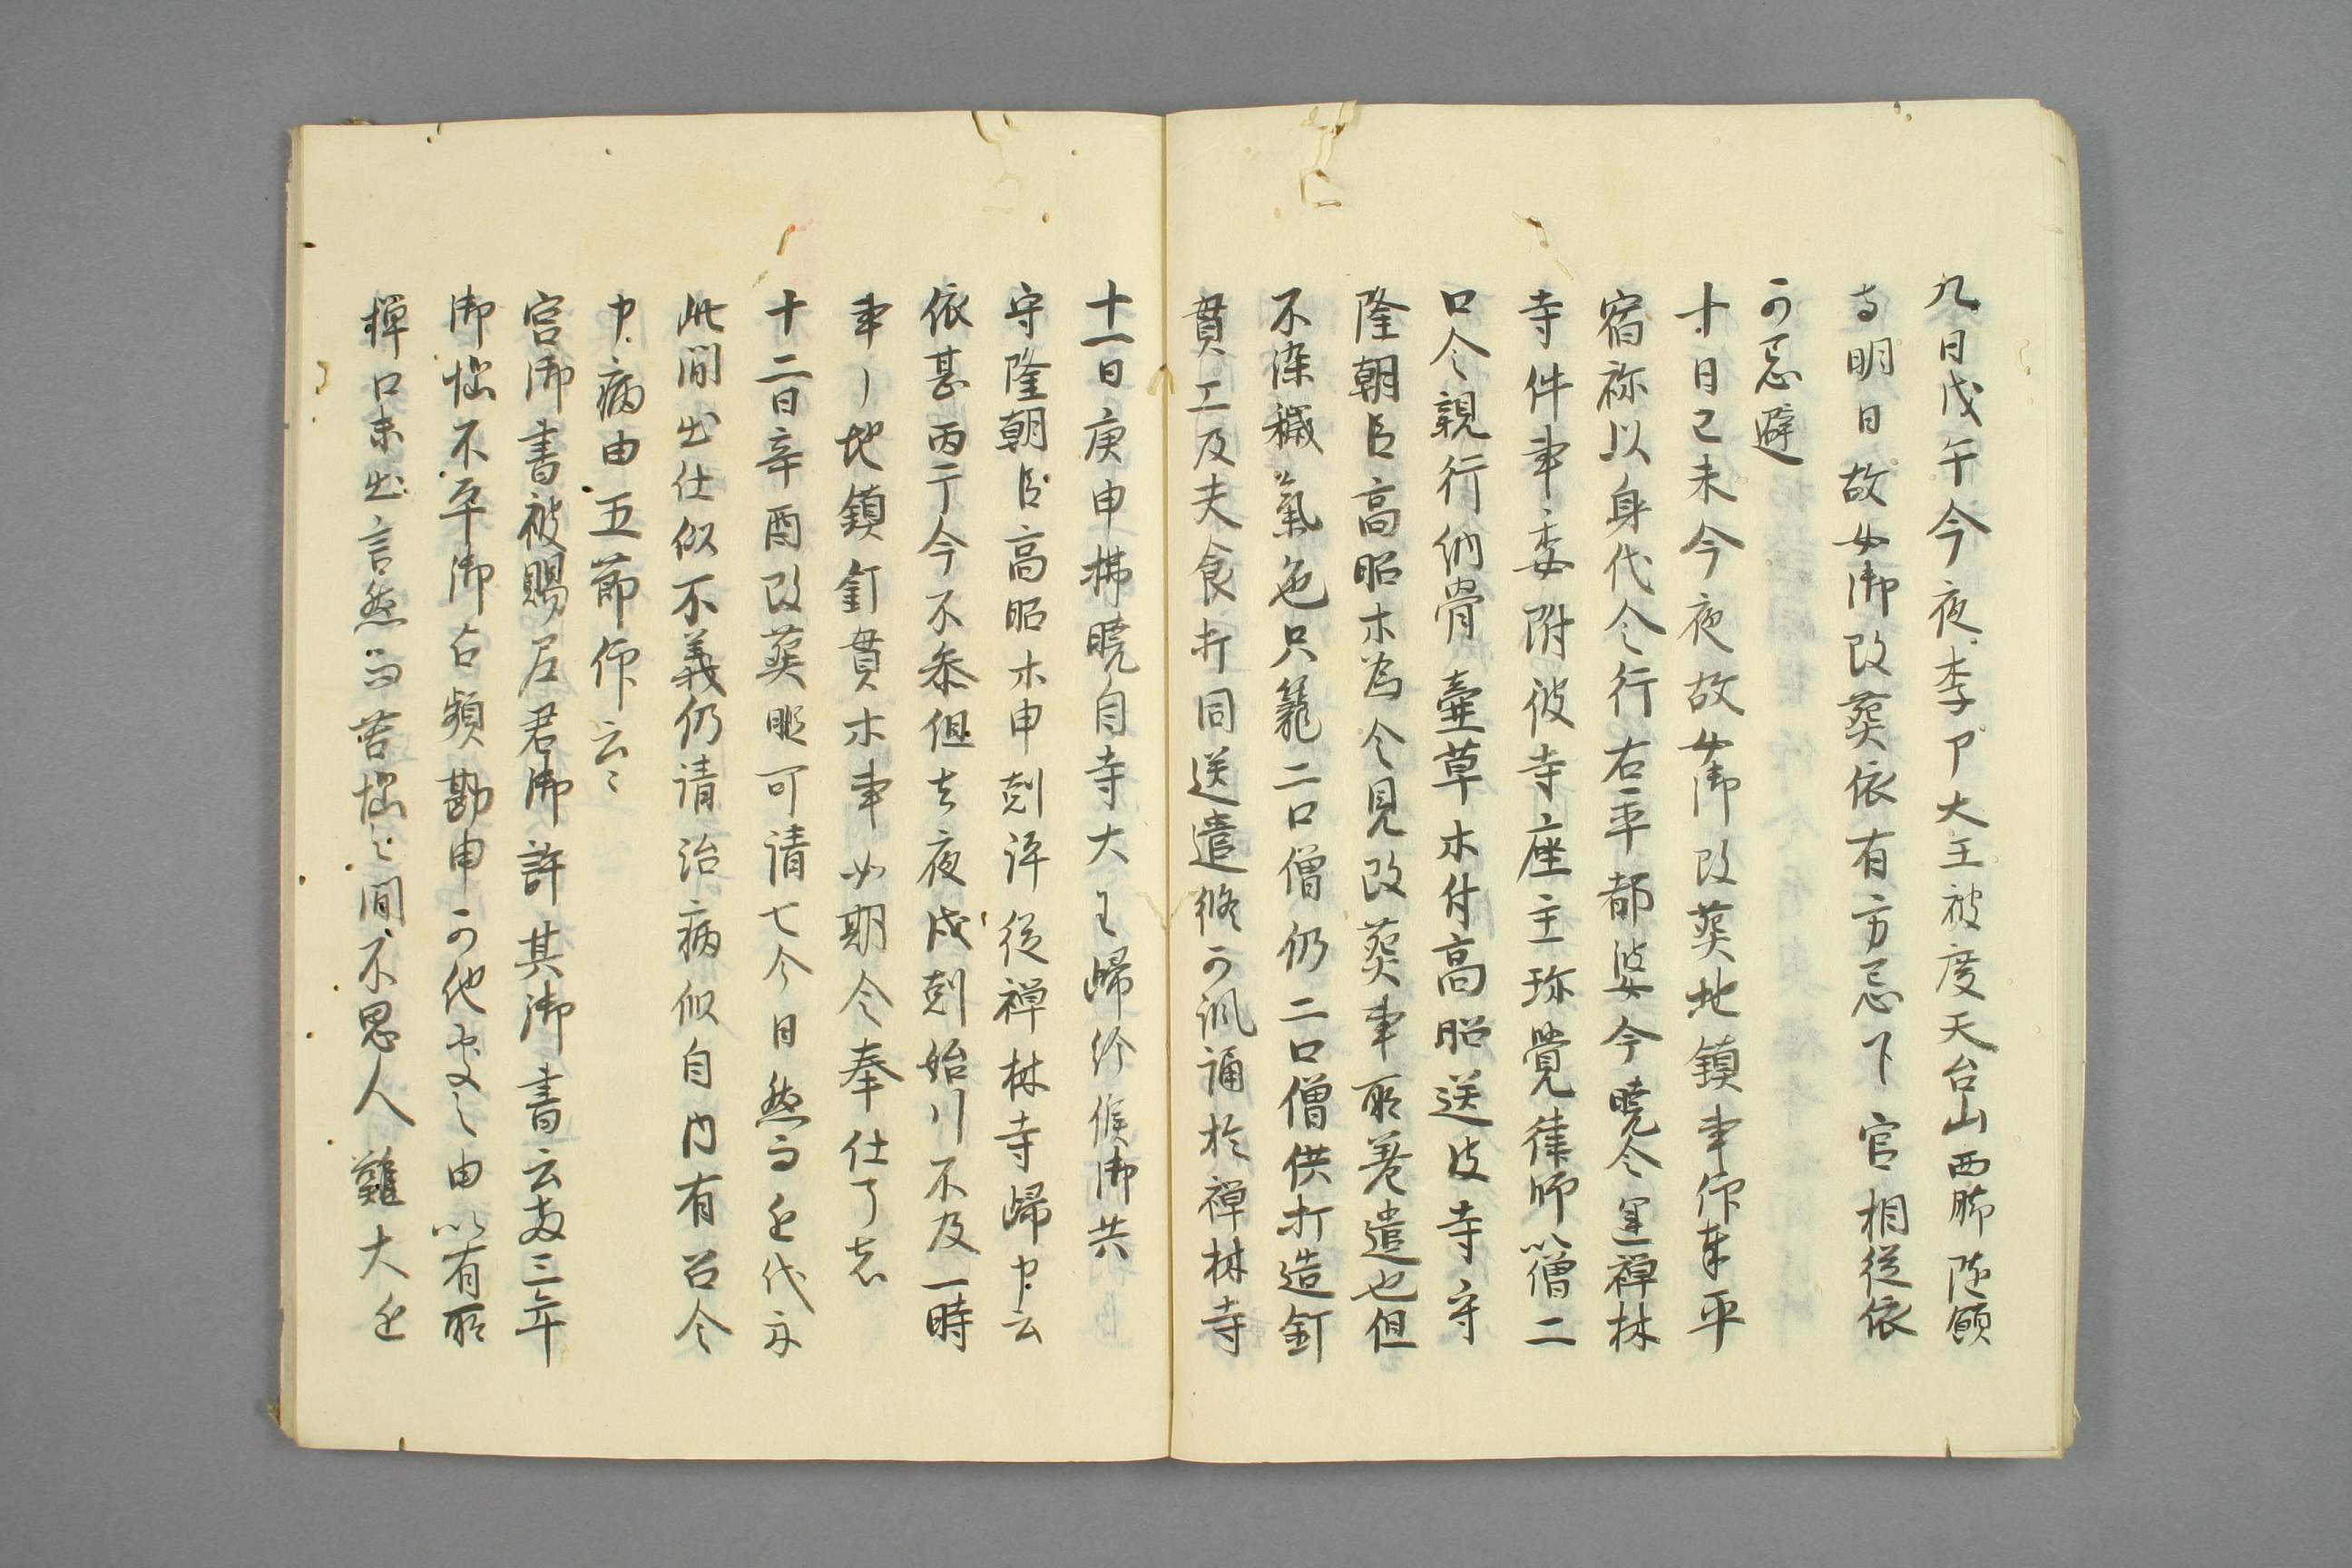 九日戊午今夜李卩大王被度天台山西脚随願
寺明日故女御改葬依有方忌下官相従依
可忌避
十日己未今夜故女御改葬地鎮事仰奉平
宿祢以身代令行右平都婆今暁令運禅林
寺件事委附彼寺座主珎覺律師以僧二
口令親行納骨壷草木付高昭送彼寺守
隆朝臣高昭木為令見改葬事所差遣也但
不染穢氣色只籠二口僧仍二口僧供打造釘
貫工及夫食打同送遣終可諷誦於禅林寺
十一日庚申拂暁自寺大王歸給候御共
守隆朝臣高昭木申剋許従禅林寺歸申云
依甚雨于今不参但去夜戌剋始行不及一時
事ヽ地鎮釘貫木事如期令奉仕了者
十二日辛酉改葬暇可請七今日然而上代亦
此間出仕似不義仍请治病似自内有召令
申病由五節仰云々
宮御書被賜尼君御許其御書云故三年
御惱不平御占頻勘申可他處之由以有所
憚口未出言然而苦惱之間不思人難大上